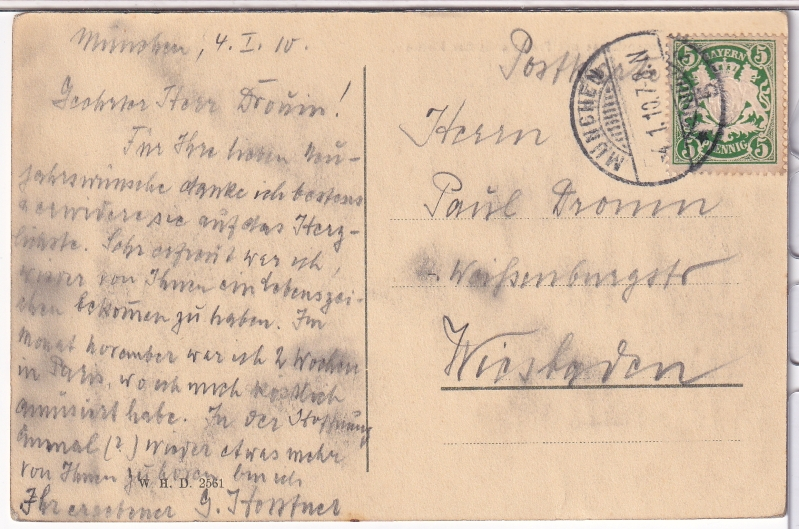 München, 4. I. 10.
Geehrter Herr Drouin!
Für Ihre lieben Neu-
jahrswünsche danke ich bestens
u erwidere sie auf das Herz-
lichste. Sehr erfreut war ich,
wieder von Ihnen ein Lebenszei-
chen bekommen zu haben. Im
Monat November war ich 2 Wochen
in Paris, wo ich mich köstlich
amüsiert habe. In der Hoffnung
einmal (?) wieder etwas mehr
von Ihnen zu hören bin ich
Ihr ergebener G.
W. H. D. 2561
Postkarte
Herrn
Paul Drouin
Weißenburgstr
Wiesbaden
MÜNCHEN
4.1.10.7-8.N
BAYERN
5 5
5 PFENNIG 5